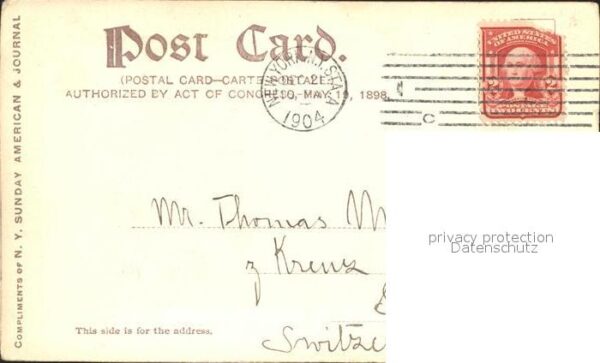 Post Card.
(POSTAL CARD—CARTE POSTALE)
AUTHORIZED BY ACT OF CONGRESS, MAY 19, 1898.
COMPLIMENTS OF N. Y. SUNDAY AMERICAN & JOURNAL
NEW YORK, N.Y. STA. A
1904
C
UNITED STATES
OF AMERICA
POSTAGE
TWO CENTS
Mr. Thomas M
z Kreuz
Switze
privacy protection
Datenschutz
This side is for the address.